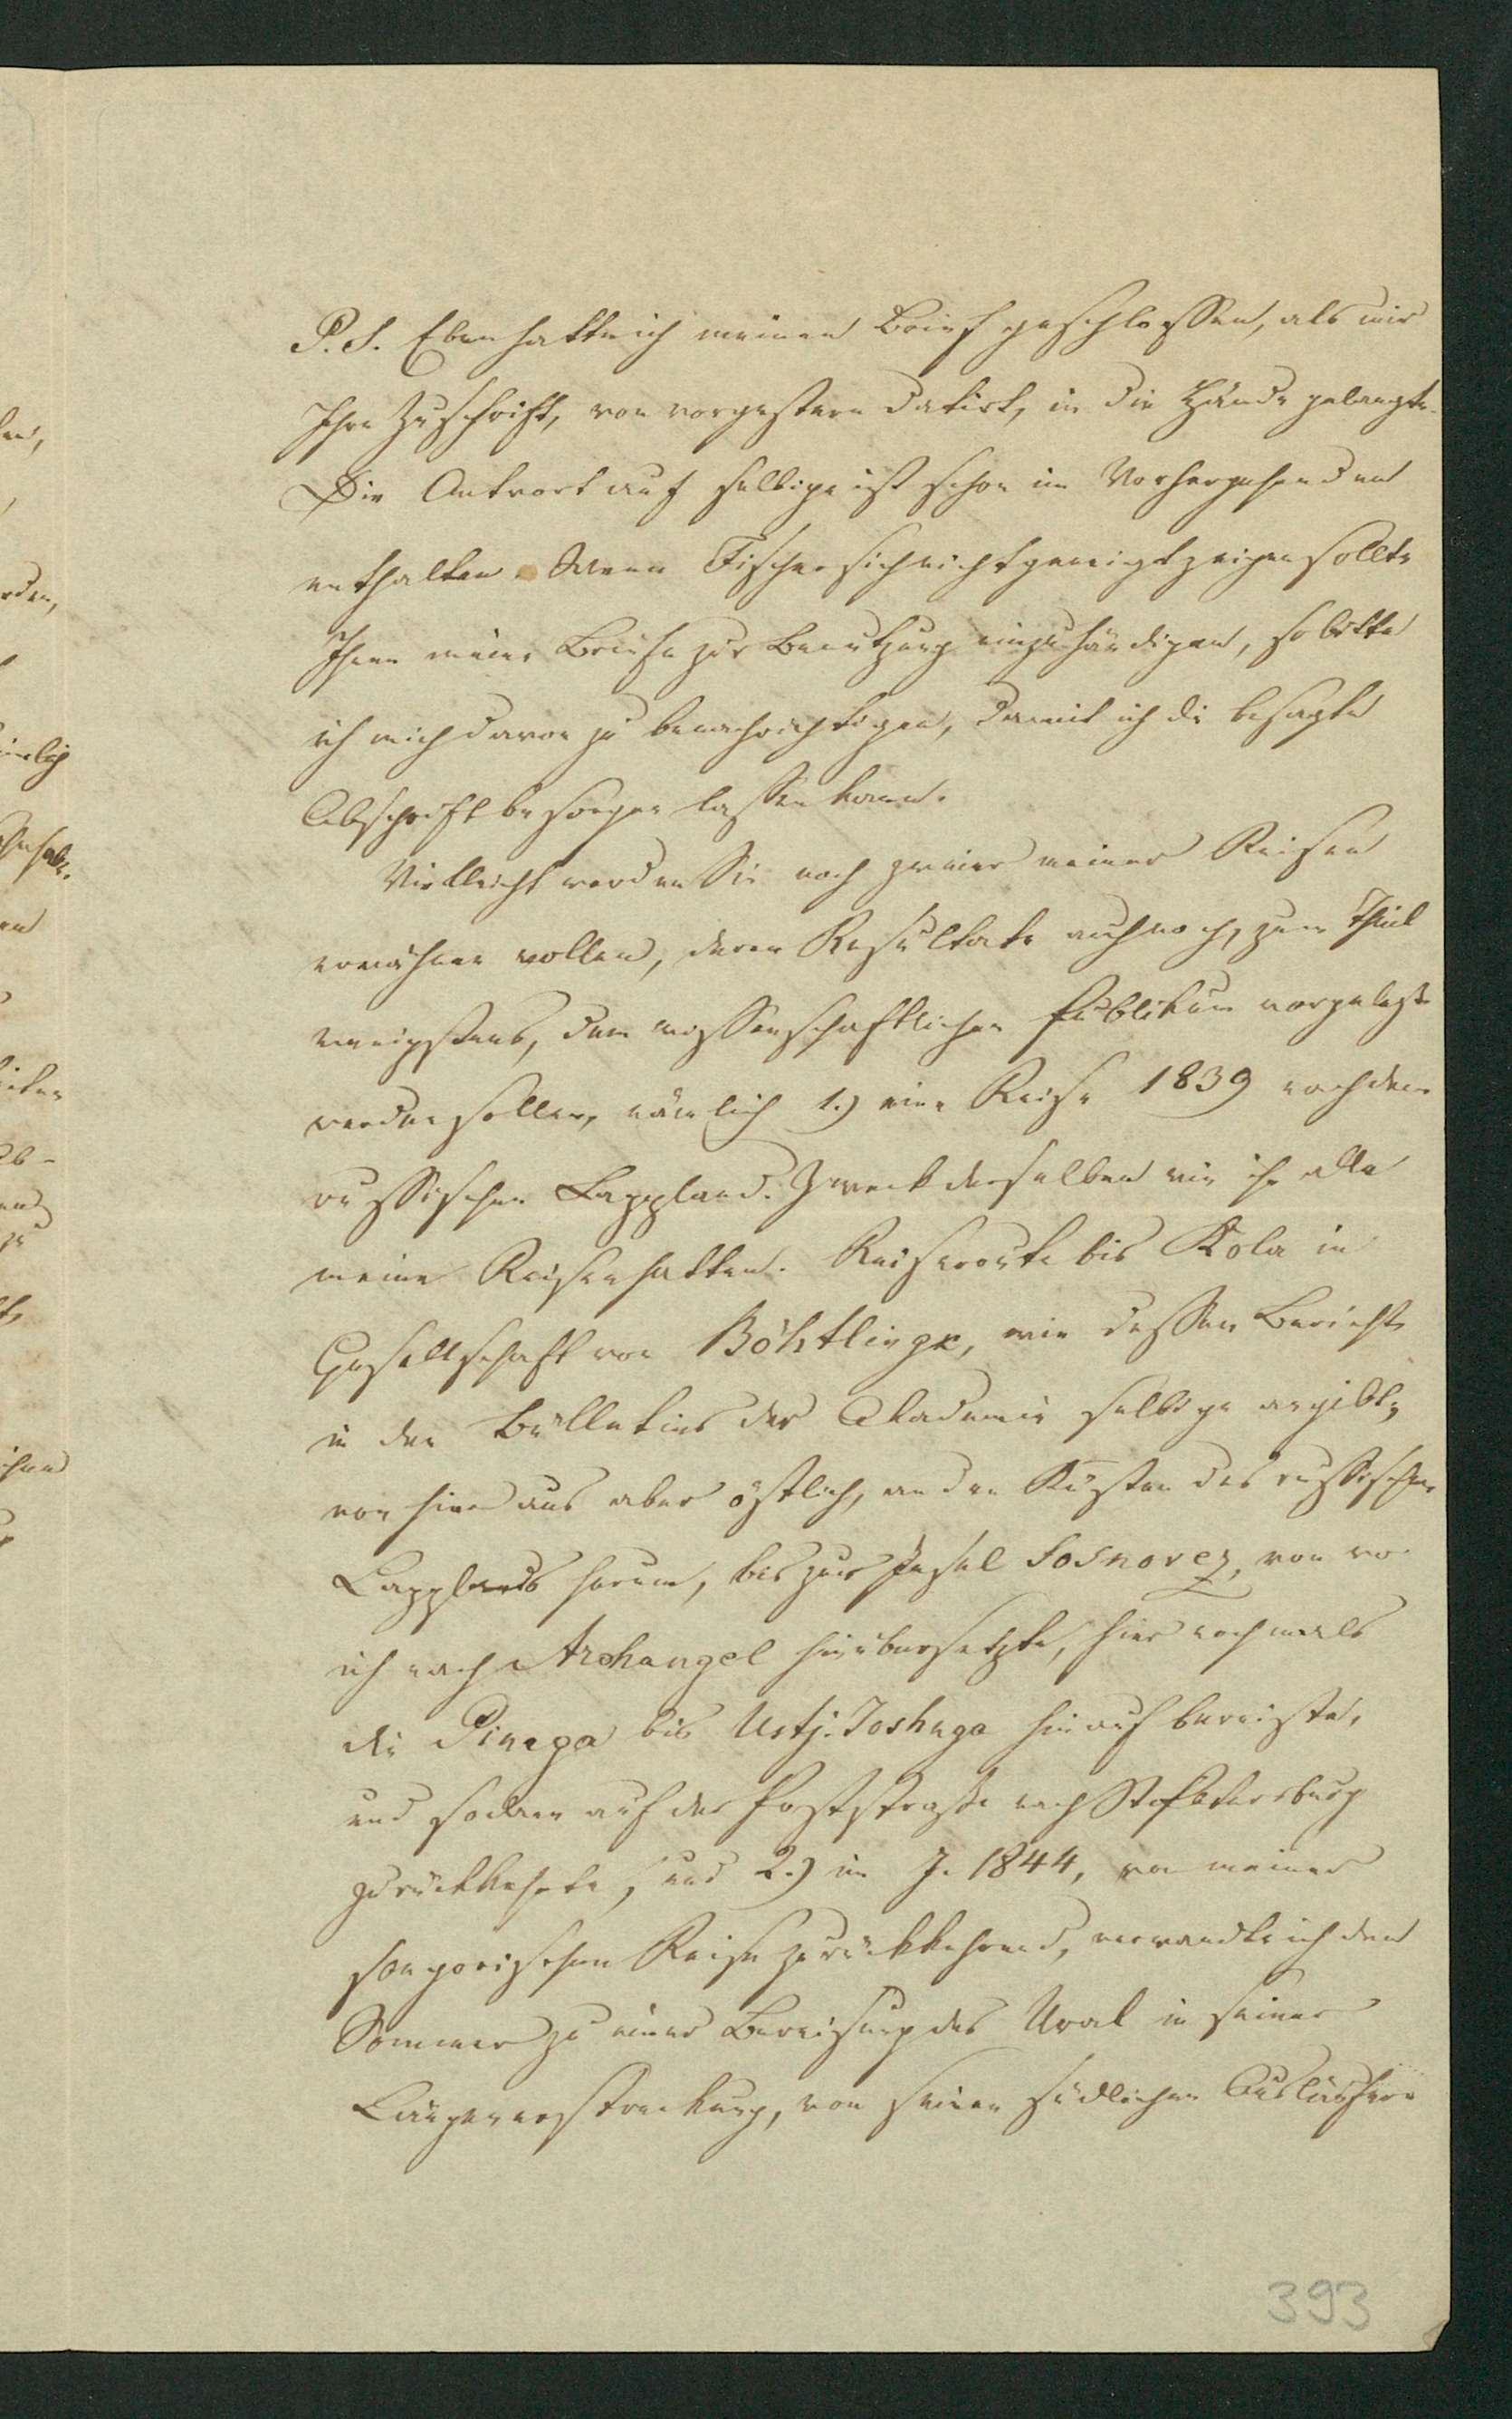 P. S. Eben hatte ich meinen Brief geschlossen, als mir
Ihre Zuschrift, von vorgestern datirt, in die Hände gelangte.
Die Antwort auf selbige ist schon im Vorhergehenden
enthalten. Wenn Fischer sich nicht geneigt zeigen sollte
Ihnen meine Briefe zur Benutzung einzuhändigen, so bitte
ich mich davon zu benachrichtigen, damit ich die besagte
Abschrift besorgen lassen kann.
Vielleicht werden Sie noch zweier meiner Reisen
erwähnen wollen, deren Resultate auch noch, zum Theil
wenigstens, dem wissenschaftlichen Publikum vorgelegt
werden sollen, nämlich 1.) eine Reise 1839 nach dem
russischen Lappland. Zweck derselben wie ihn alle
meine Reisen hatten. Reiseroute bis Kola in
Gesellschaft von Böhtlingk, wie dessen Bericht
in den Bulletins der Academie selbige ergibt,
von hier aus aber östlich, an den Küsten des russischen
Lapplands herum, bis zur Insel Sosnovez, von wo
ich nach Archangel hinübersetzte, hier nochmals
die Pinega bis Ustj-Joshuga hinauf bereiste,
und sodann auf der Poststrasse nach St. Petersburg
zurückkehrte, und 2.) im J. 1844, von meiner
songorischen Reise zurückkehrend, verwandte ich den
Sommer zu einer Bereisung des Ural in seiner
Längenerstreckung, von seinen südlichen Ausläufern
393